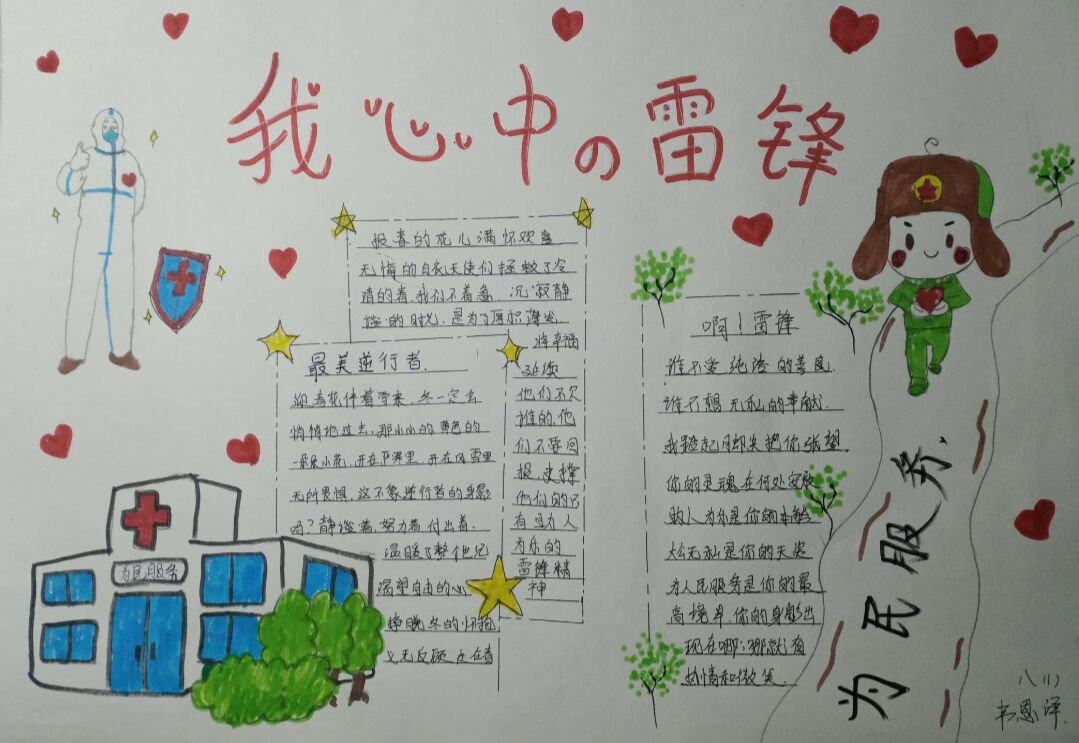 我心中の雷锋
报春的花儿满怀欢喜
无悔的白衣天使们拯救了冷
清的春,我们不着急.沉寂静
谧的时光,是为了厚积薄发
将幸福
延续
他们不欠
谁的,他
们不要回
报,支撑
他们的只
有助人
为乐的
雷锋精
神
最美逆行者.
迎春花伴着雪来,冬一定会
悄悄地过去,那小小的黄色的
一朵朵小花,开在严寒里,开在风雪里
无所畏惧,这不象逆行者的身影
吗?静谧着努力着付出着.
温暖了整个儿
渴望自由的心
挣脱冬的怀抱
义无反顾
啊!雷锋
谁不爱纯洁的善良.
谁不想无私的奉献.
我踮起月却尖把你张望
你的灵魂在何处安放
助人为乐是你的本能
大公无私是你的天姿
为人民服务是你的最
高境界,你的身影出
现在哪,哪就有
热情和微笑.
为民服务
为民服务.
八(1)
韦恩泽.